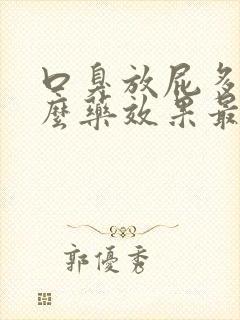 口臭放屁多
麼藥效果最
郭優秀